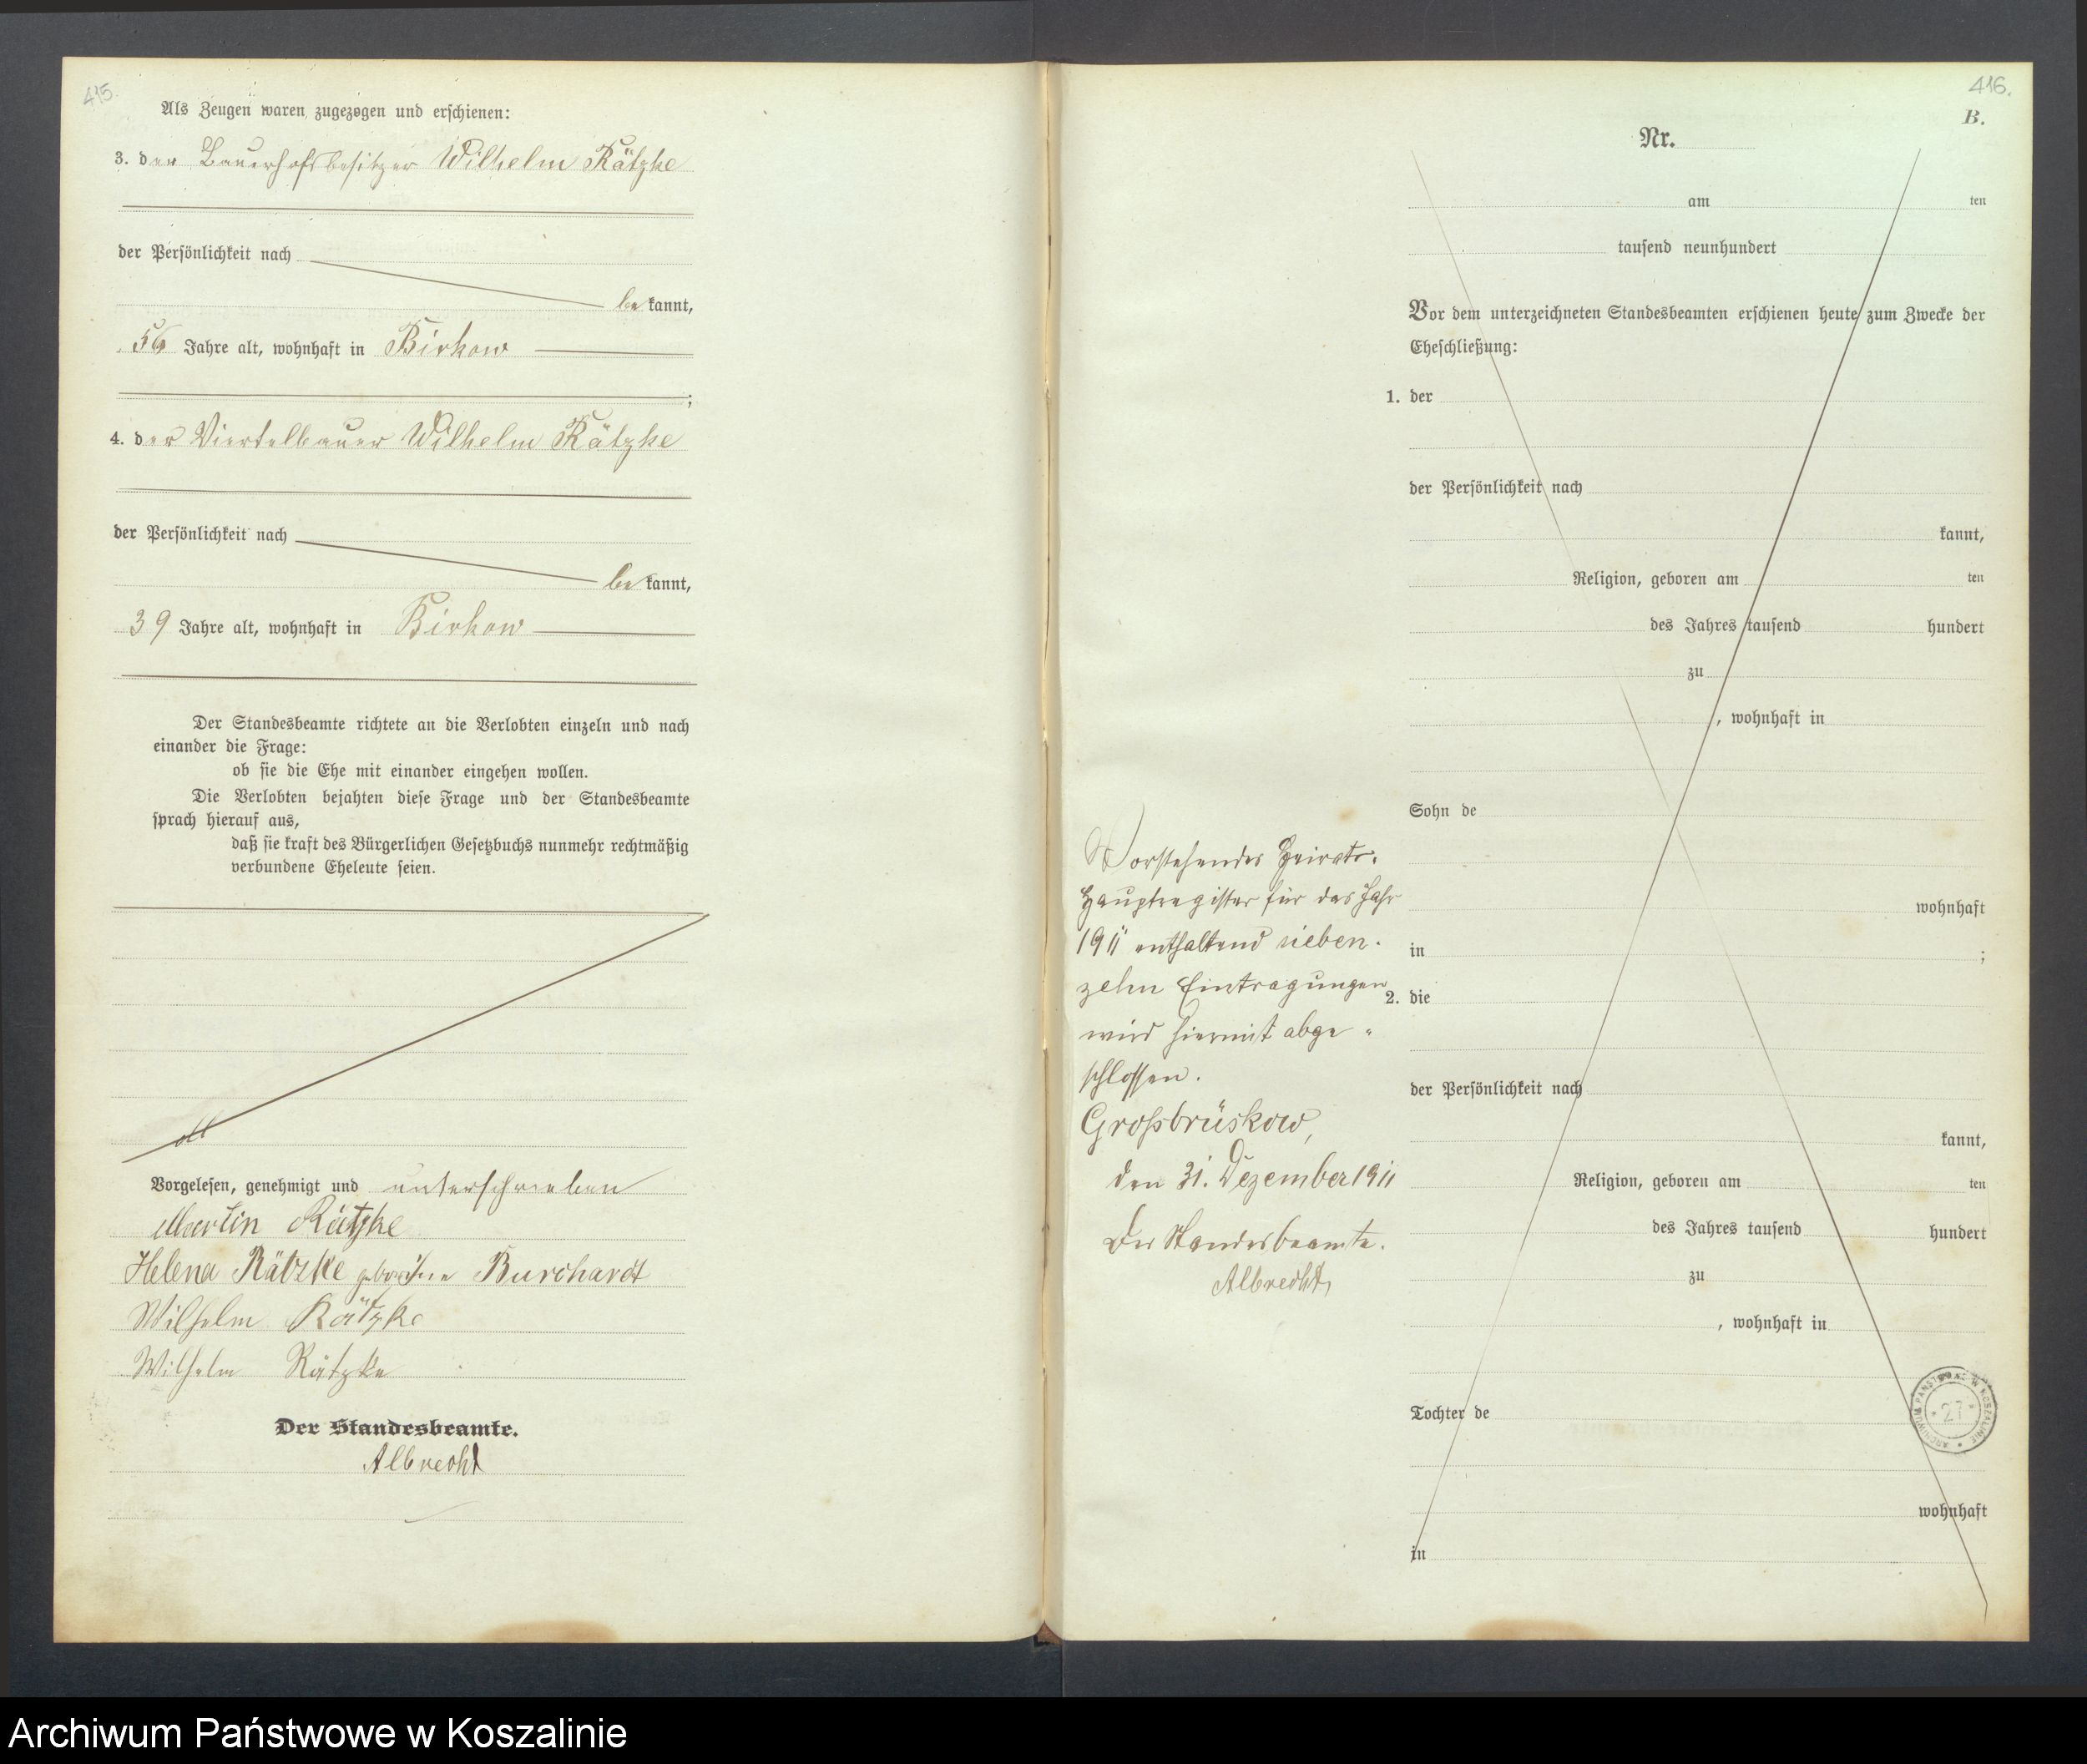 415.
Als Zeugen waren zugezogen und erschienen:
3. der Bauerhofsbesitzer Wilhelm Rätzke
der Persönlichkeit nach
bekannt,
56 Jahre alt, wohnhaft in Birkow
;
4. der Viertelbauer Wilhelm Rätzke
der Persönlichkeit nach
bekannt,
39 Jahre alt, wohnhaft in Birkow
Der Standesbeamte richtete an die Verlobten einzeln und nach
einander die Frage:
ob sie die Ehe mit einander eingehen wollen.
Die Verlobten bejahten diese Frage und der Standesbeamte
sprach hierauf aus,
daß sie kraft des Bürgerlichen Gesetzbuchs nunmehr rechtmäßig
verbundene Eheleute seien.
Vorgelesen, genehmigt und unterschrieben
Martin Rätzke
Helena Rätzke geborene Burchardt
Wilhelm Rätzke
Wilhelm Rätzke
Der Standesbeamte.
Albrecht
416.
B.
Nr.
am ten
tausend neunhundert
Vor dem unterzeichneten Standesbeamten erschienen heute zum Zwecke der
Eheschließung:
1. der
der Persönlichkeit nach
kannt,
Religion, geboren am ten
des Jahres tausend hundert
zu
, wohnhaft in
Sohn de
wohnhaft
in ;
2. die
der Persönlichkeit nach
kannt,
Religion, geboren am ten
des Jahres tausend hundert
zu
, wohnhaft in
Tochter de
wohnhaft
in
Vorstehendes Heirats-
Hauptregister für das Jahr
1911 enthaltend sieben-
zehn Eintragungen
wird hiermit abge-
schlossen.
Grossbrüskow,
den 31. Dezember 1911
Der Standesbeamte.
Albrecht
ARCHIWUM PAŃSTWOWE W KOSZALINIE
* 27 *
Archiwum Państwowe w Koszalinie